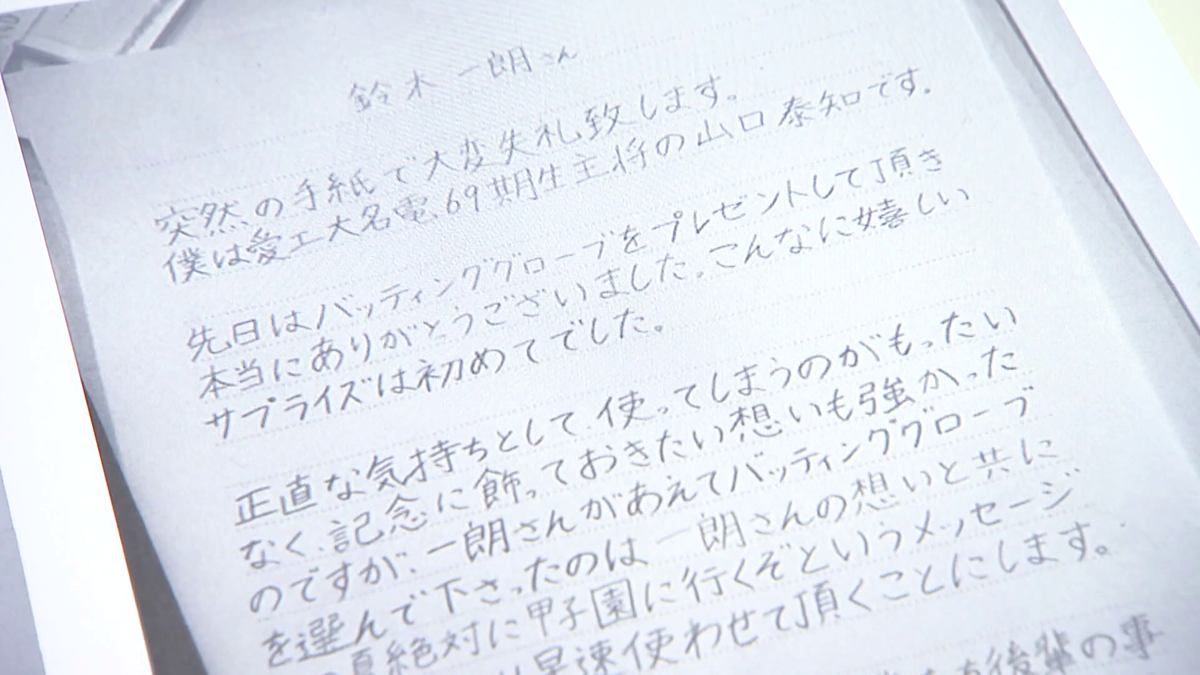 鈴木一朗さん
突然の手紙で大変失礼致します。
僕は愛工大名電、69期生主将の山口泰知です。
先日はバッティンググローブをプレゼントして頂き
本当にありがとうございました。こんなに嬉しい
サプライズは初めてでした。
正直な気持ちとして、使ってしまうのがもったい
なく、記念に飾っておきたい想いも強かった
のですが、一朗さんがあえてバッティンググローブ
を選んで下さったのは一朗さんの想いと共に
絶対に甲子園に行くぞというメッセージ
早速使わせて頂くことにします。
後輩の事